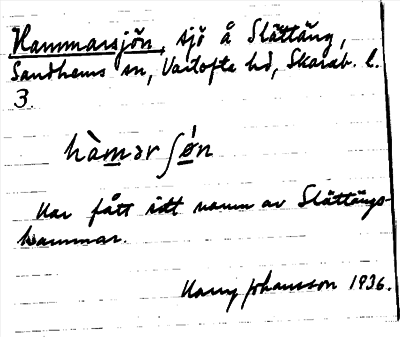 Hammarsjön, sjö å Slättäng,
Sandhems sn, Vartofta hd, Skarab. l.
3.
hàmər ʃǿn
Har fått sitt namn av Slättängs-
hammar.
Harry Johansson 1936.